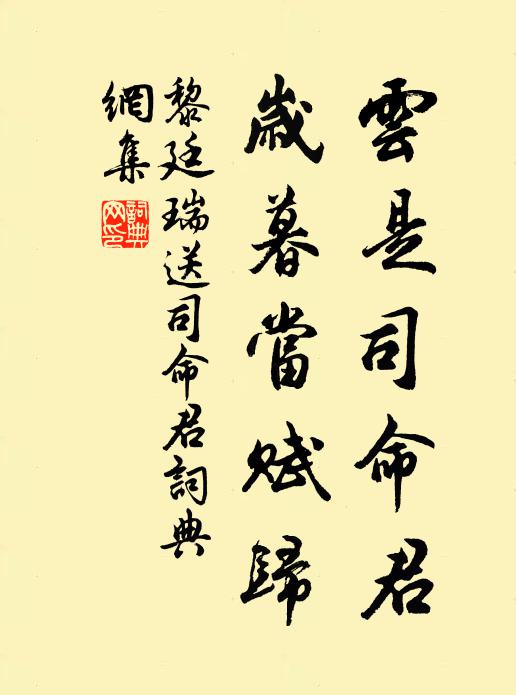 雲是司命君
歲暮當賦歸
黎廷瑞送司命君詞典
網集
詞典網印